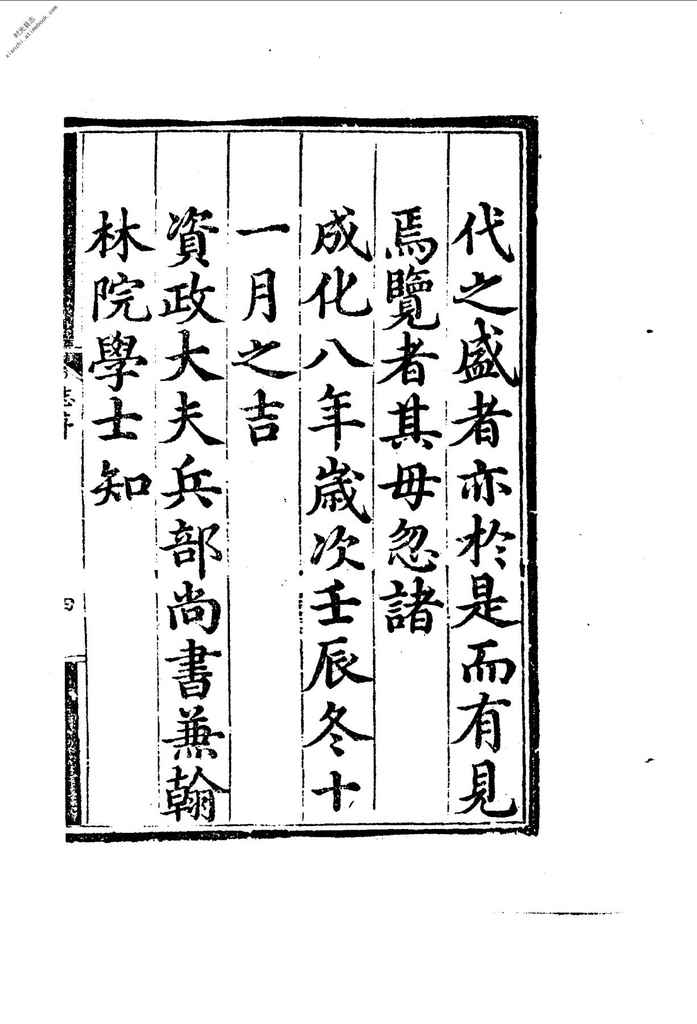 代之盛者亦於是而有見
焉覽者其毋忽諸
成化八年歲次壬辰冬十
一月之吉
資政大夫兵部尚書兼翰
林院學士知
志序
四